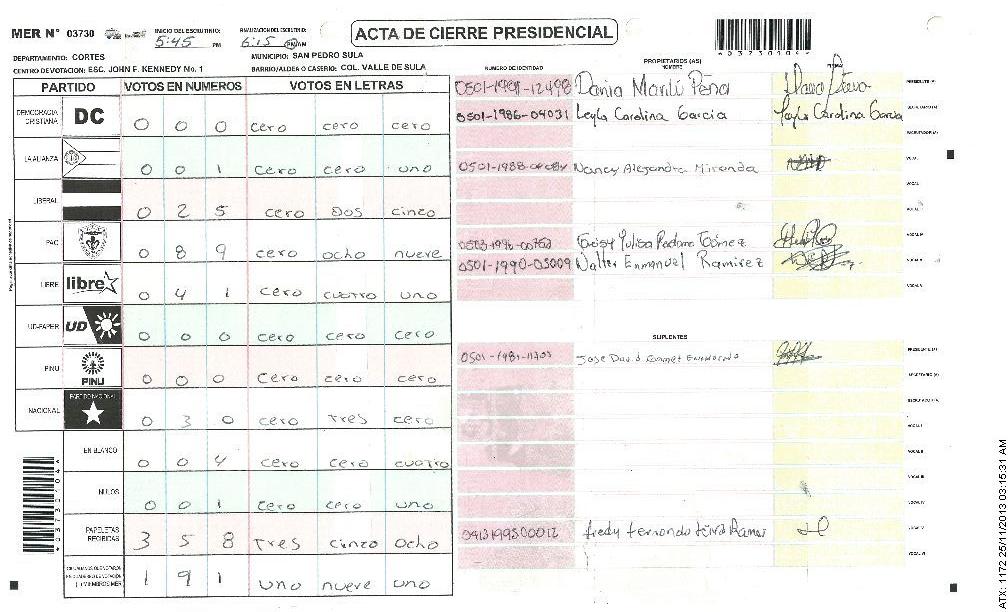 MER N° 03730
INICIO DEL ESCRUTINIO: 5:45 PM
FINALIZACION DEL ESCRUTINIO: 6:15 PM AM
ACTA DE CIERRE PRESIDENCIAL
DEPARTAMENTO: CORTES
MUNICIPIO: SAN PEDRO SULA
CENTRO DE VOTACION: ESC. JOHN F. KENNEDY No. 1
BARRIO/ALDEA O CASERIO: COL. VALLE DE SULA
PARTIDO VOTOS EN NUMEROS VOTOS EN LETRAS
DEMOCRACIA CRISTIANA DC 0 0 0 cero cero cero
LA ALIANZA 0 0 1 cero cero uno
LIBERAL 0 2 5 cero Dos cinco
PAC 0 8 9 cero ocho nueve
LIBRE libre 0 4 1 cero cuatro uno
UD-FAPER UD 0 0 0 cero cero cero
PINU PINU 0 0 0 cero cero cero
NACIONAL PARTIDO NACIONAL 0 3 0 cero Tres cero
EN BLANCO 0 0 4 cero cero cuatro
NULOS 0 0 1 cero cero uno
PAPELETAS RECIBIDAS 3 5 8 Tres cinco ocho
CIUDADANOS QUE VOTARON EN CUADERNO DE VOTACION (+) MIEMBROS MER 1 9 1 uno nueve uno
*03730104*
*03730104*
NUMERO DE IDENTIDAD
PROPIETARIOS (AS)
NOMBRE
FIRMA
PRESIDENTE (A)
0501-1986-04031 Leyla Carolina Garcia Leyla Carolina Garcia SECRETARIO (A)
ESCRUTADOR (A)
Nancy Alejandra Miranda VOCAL I
VOCAL II
VOCAL III
VOCAL IV
0501-1990-05009 Walter Enmanuel Ramirez VOCAL V
VOCAL VI
SUPLENTES
Jose David PRESIDENTE (A)
SECRETARIO (A)
ESCRUTADOR (A)
VOCAL I
VOCAL II
VOCAL III
VOCAL IV
Fredy Fernando VOCAL V
VOCAL VI
ATX: 1172 25/11/2013 03:15:31 AM